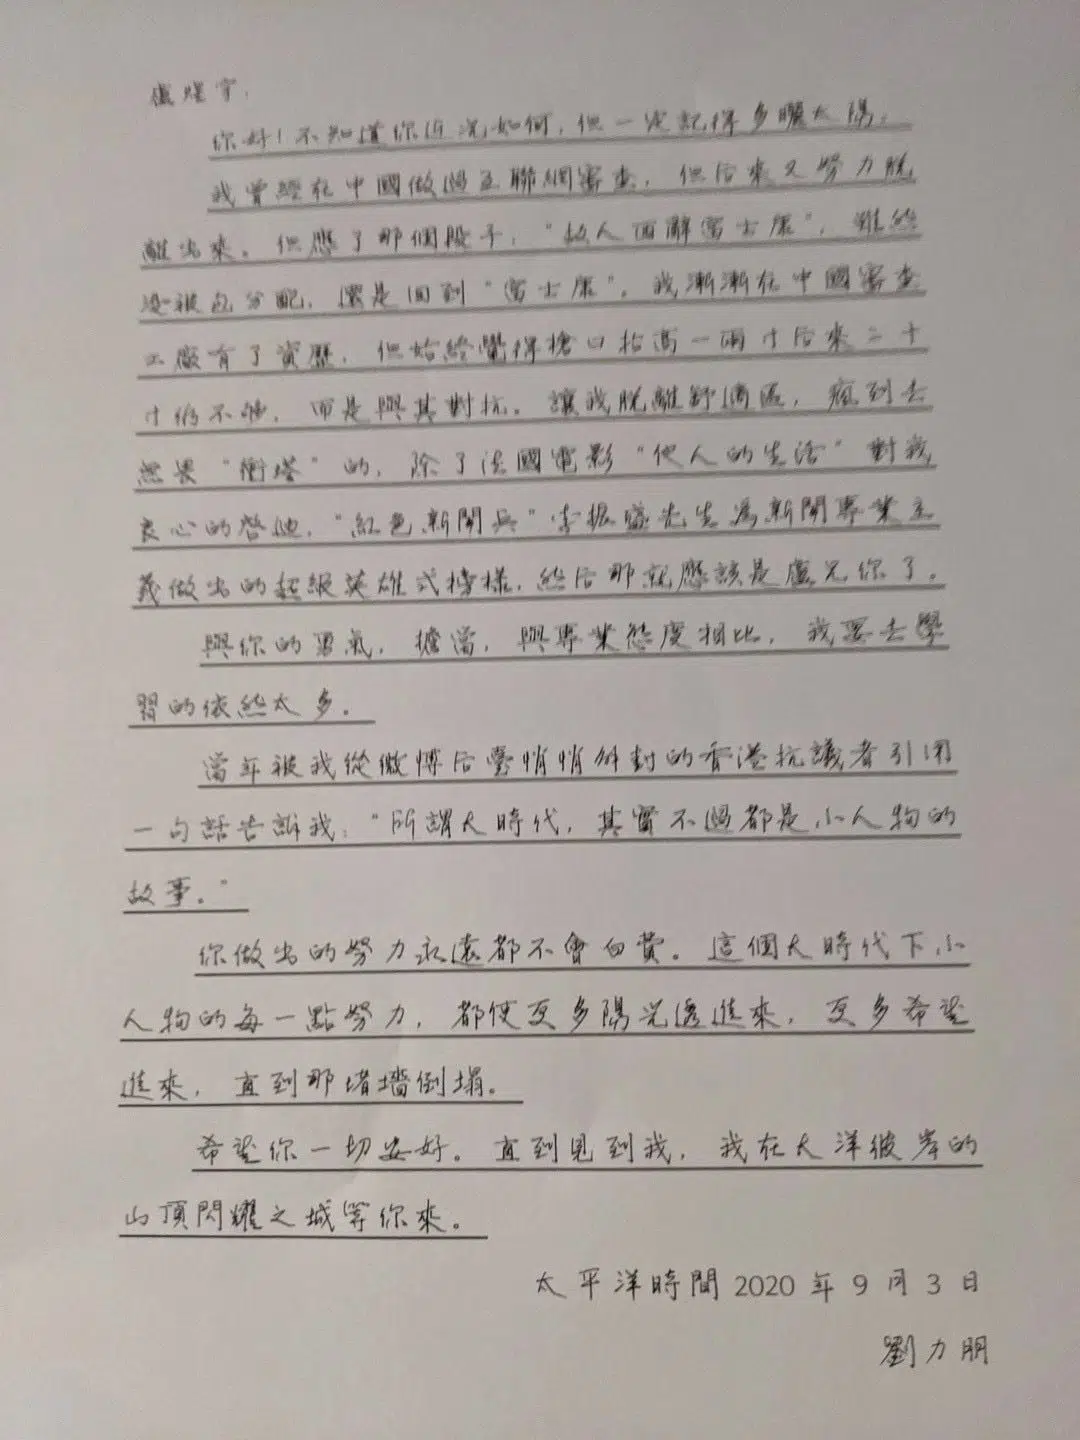 盧煜宇，
你好！不知道你近況如何，但一定記得多曬太陽。
我曾經在中國做過互聯網審查，但后來又努力脫
離出來。但應了那個段子，“故人西辭富士康”，雖然
沒被包分配，還是回到“富士康”。我漸漸在中國審查
工廠有了資歷，但始終覺得槍口抬高一兩寸后來二十
寸仍不夠，而是與其對抗。讓我脫離舒適區，瘋到去
無畏“衝塔”的，除了法國電影“他人的生活”對我
良心的啓迪，“紅色新聞兵”李振盛先生為新聞專業主
義做出的超級英雄式榜樣，然后那就應該是盧兄你了。
與你的勇氣，擔當，與專業態度相比，我要去學
習的依然太多。
當年被我從微博后臺悄悄解封的香港抗議者引用
一句話告訴我：“所謂大時代，其實不過都是小人物的
故事。”
你做出的努力永遠都不會白費。這個大時代下，小
人物的每一點努力，都使更多陽光透進來，更多希望
進來，直到那堵墻倒塌。
希望你一切安好。直到見到我，我在大洋彼岸的
山頂閃耀之城等你來。
太平洋時間2020年9月3日
劉力朋